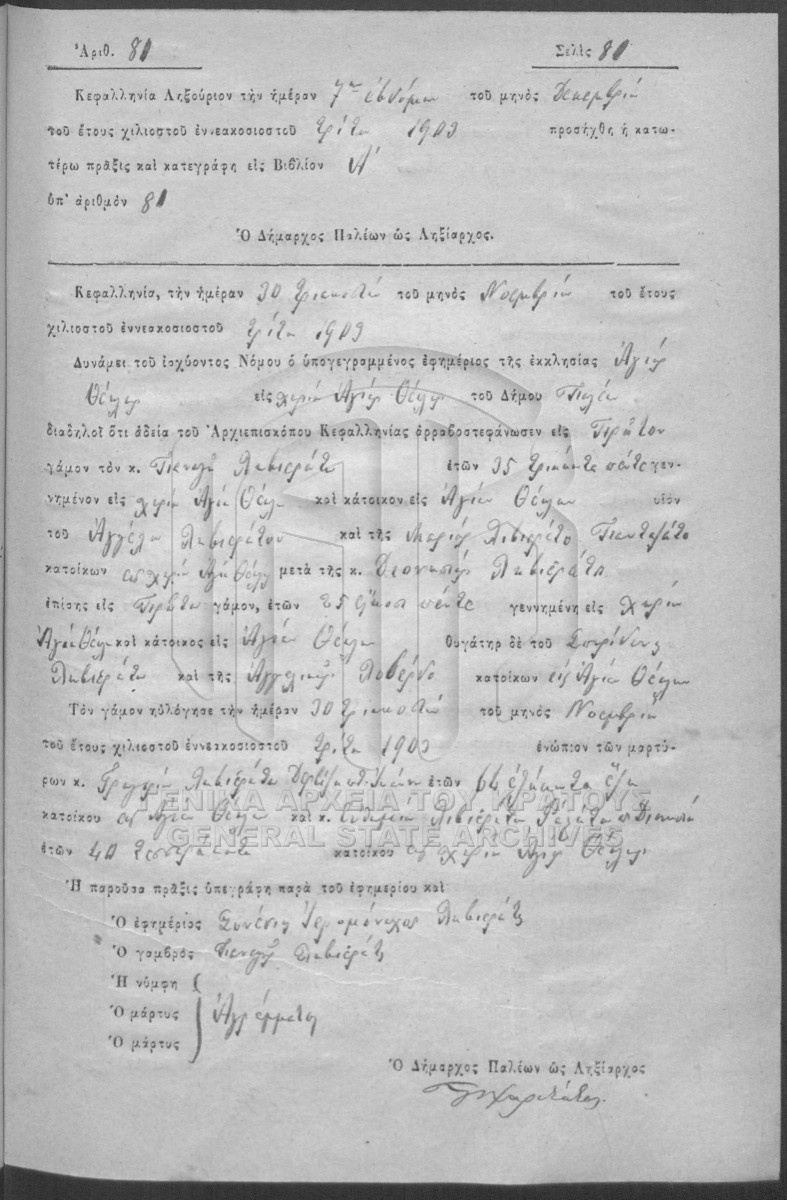 Ἀριθ. 81 Σελὶς 81
Κεφαλληνία Ληξούριον τὴν ἡμέραν 7ην ἑβδόμην τοῦ μηνὸς Δεκεμβρίου
τοῦ ἔτους χιλιοστοῦ ἐννεακοσιοστοῦ τρίτου 1903 προσήχθη ἡ κατω-
τέρω πρᾶξις καὶ κατεγράφη εἰς Βιβλίον Α΄
ὑπ' ἀριθμὸν 81
Ὁ Δήμαρχος Παλέων ὡς Ληξίαρχος.
Κεφαλληνία, τὴν ἡμέραν 30 τριακοστὴν τοῦ μηνὸς Νοεμβρίου τοῦ ἔτους
χιλιοστοῦ ἐννεακοσιοστοῦ τρίτου 1903
Δυνάμει τοῦ ἰσχύοντος Νόμου ὁ ὑπογεγραμμένος ἐφημέριος τῆς ἐκκλησίας Ἁγίας
Θέκλης εἰς χωρίον Ἁγίας Θέκλης τοῦ Δήμου Παλέων
διαδηλοῖ ὅτι ἀδεία τοῦ Ἀρχιεπισκόπου Κεφαλληνίας ἀρραβοστεφάνωσεν εἰς Πρῶτον
γάμον τὸν κ. Παναγῆ Λιβιεράτον ἐτῶν 35 τριάκοντα πέντε γεν-
νημένον εἰς χωρίον Ἁγία Θέκλα καὶ κάτοικον εἰς Ἁγίαν Θέκλαν υἱὸν
τοῦ Ἀγγέλου Λιβιεράτου καὶ τῆς Μαρίας Λιβιεράτο
κατοίκων εἰς χωρίον Ἁγία Θέκλα μετὰ τῆς κ. Διονυσίας Λιβιεράτου
ἐπίσης εἰς Πρῶτον γάμον, ἐτῶν 25 εἴκοσι πέντε γεννημένη εἰς χωρίον
Ἁγία Θέκλα καὶ κάτοικος εἰς Ἁγίαν Θέκλαν θυγάτηρ δὲ τοῦ Σπυρίδωνος
Λιβιεράτου καὶ τῆς Ἀγγελικῆς Λοβέρδο κατοίκων εἰς Ἁγία Θέκλαν
Τὸν γάμον ηὐλόγησε τὴν ἡμέραν 30 τριακοστὴν τοῦ μηνὸς Νοεμβρίου
τοῦ ἔτους χιλιοστοῦ ἐννεακοσιοστοῦ τρίτου 1903 ἐνώπιον τῶν μαρτύ-
ρων κ. Γρηγορίου Λιβιεράτου ἐτῶν 66 ἑξήκοντα ἕξη
κατοίκου εἰς Ἁγία Θέκλαν καὶ κ. Λιβιεράτου
ἐτῶν 40 τεσσαράκοντα κατοίκου εἰς χωρίον Ἁγίας Θέκλης
Ἡ παροῦσα πρᾶξις ὑπεγράφη παρὰ τοῦ ἐφημερίου καὶ
Ὁ ἐφημέριος Συνέσιος Ἱερομόναχος Λιβιεράτος
Ὁ γαμβρὸς Παναγῆς Λιβιεράτος
Ἡ νύμφη
Ὁ μάρτυς Ἀγράμματοι
Ὁ μάρτυς
Ὁ Δήμαρχος Παλέων ὡς Ληξίαρχος
ΓΕΝΙΚΑ ΑΡΧΕΙΑ ΤΟΥ ΚΡΑΤΟΥΣ
GENERAL STATE ARCHIVES